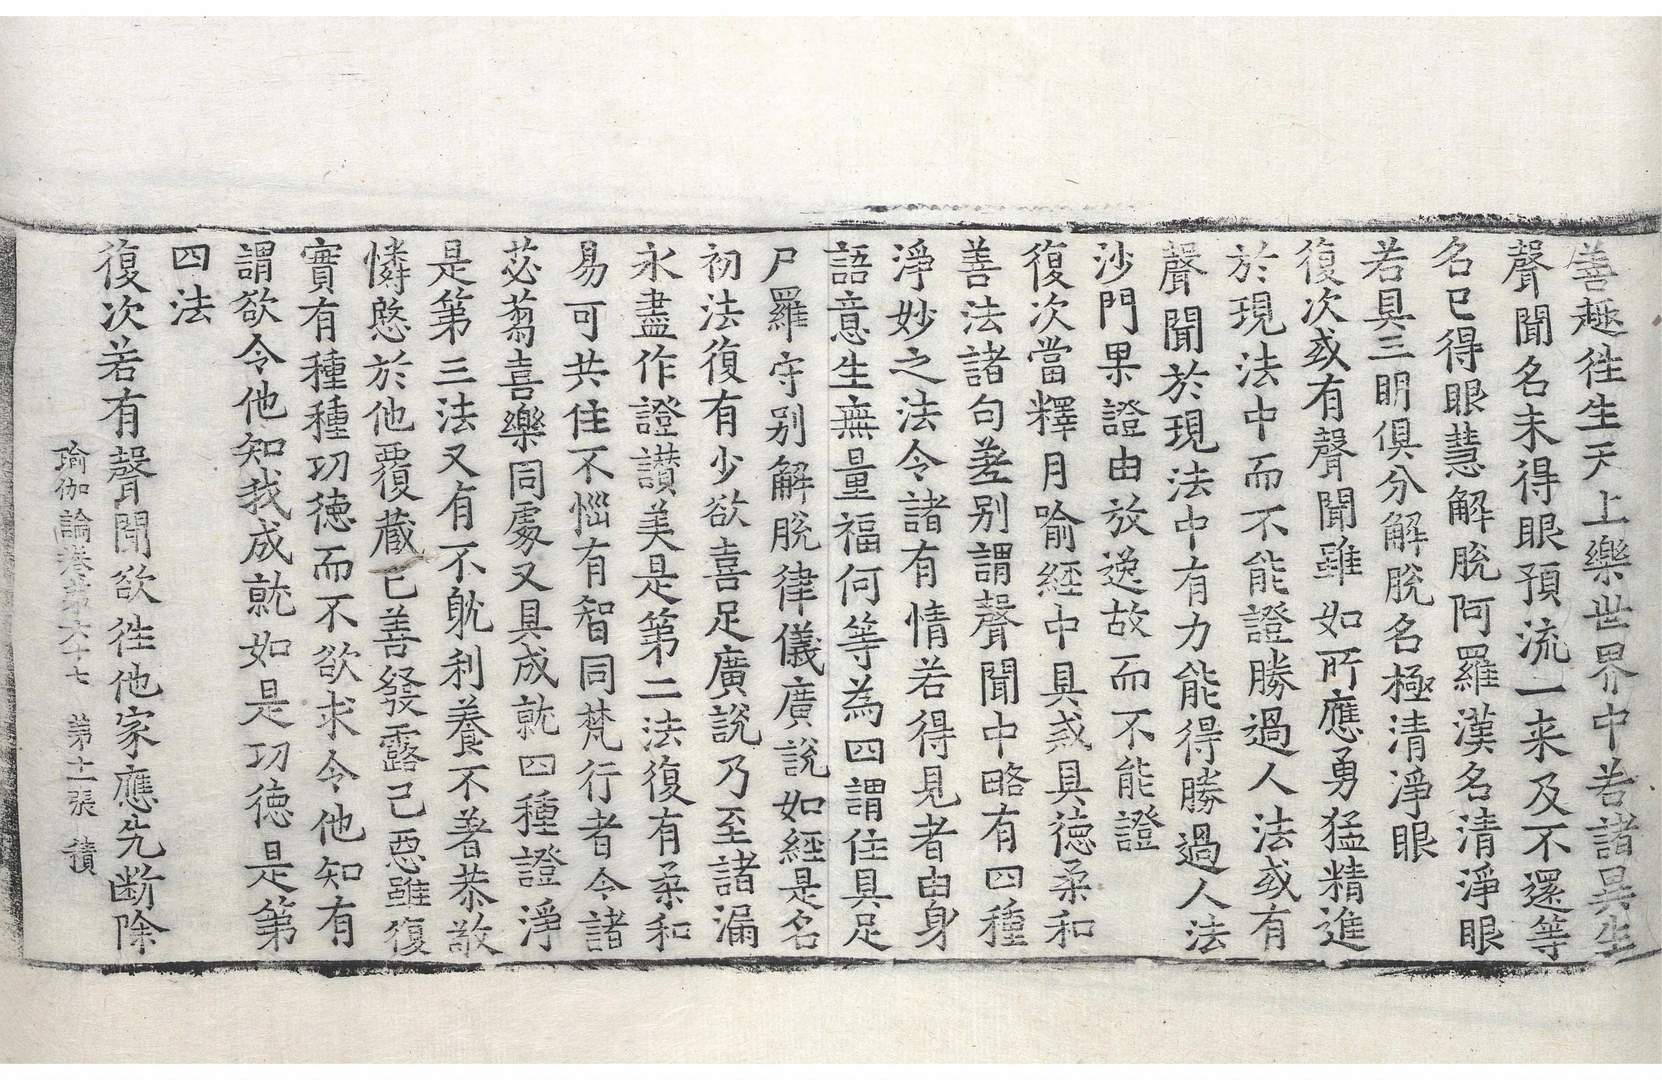 善趣徃生天上樂世界中若諸異生
聲聞名未得眼預流一来及不還等
名已得眼慧解脫阿羅漢名清淨眼
若具三明俱分解脫名極清淨眼
復次或有聲聞雖如所應勇猛精進
於現法中而不能證勝過人法或有
聲聞於現法中有力能得勝過人法
沙門果證由放逸故而不能證
復次當釋月喻經中具惑具徳柔和
善法諸句差別謂聲聞中略有四種
淨妙之法令諸有情若得見者由身
語意生無量福何等為四謂住具足
尸羅守別解脫律儀廣說如經是名
初法復有少欲喜足廣說乃至諸漏
永盡作證讃美是第二法復有柔和
易可共住不惱有智同梵行者令諸
苾蒭喜樂同處又具成就四種證淨
是第三法又有不躭利養不著恭敬
憐愍於他覆藏己善發露己惡雖復
實有種種功徳而不欲求令他知有
謂欲令他知我成就如是功徳是第
四法
復次若有聲聞欲徃他家應先断除
瑜伽論卷第六十七　第十一張　積